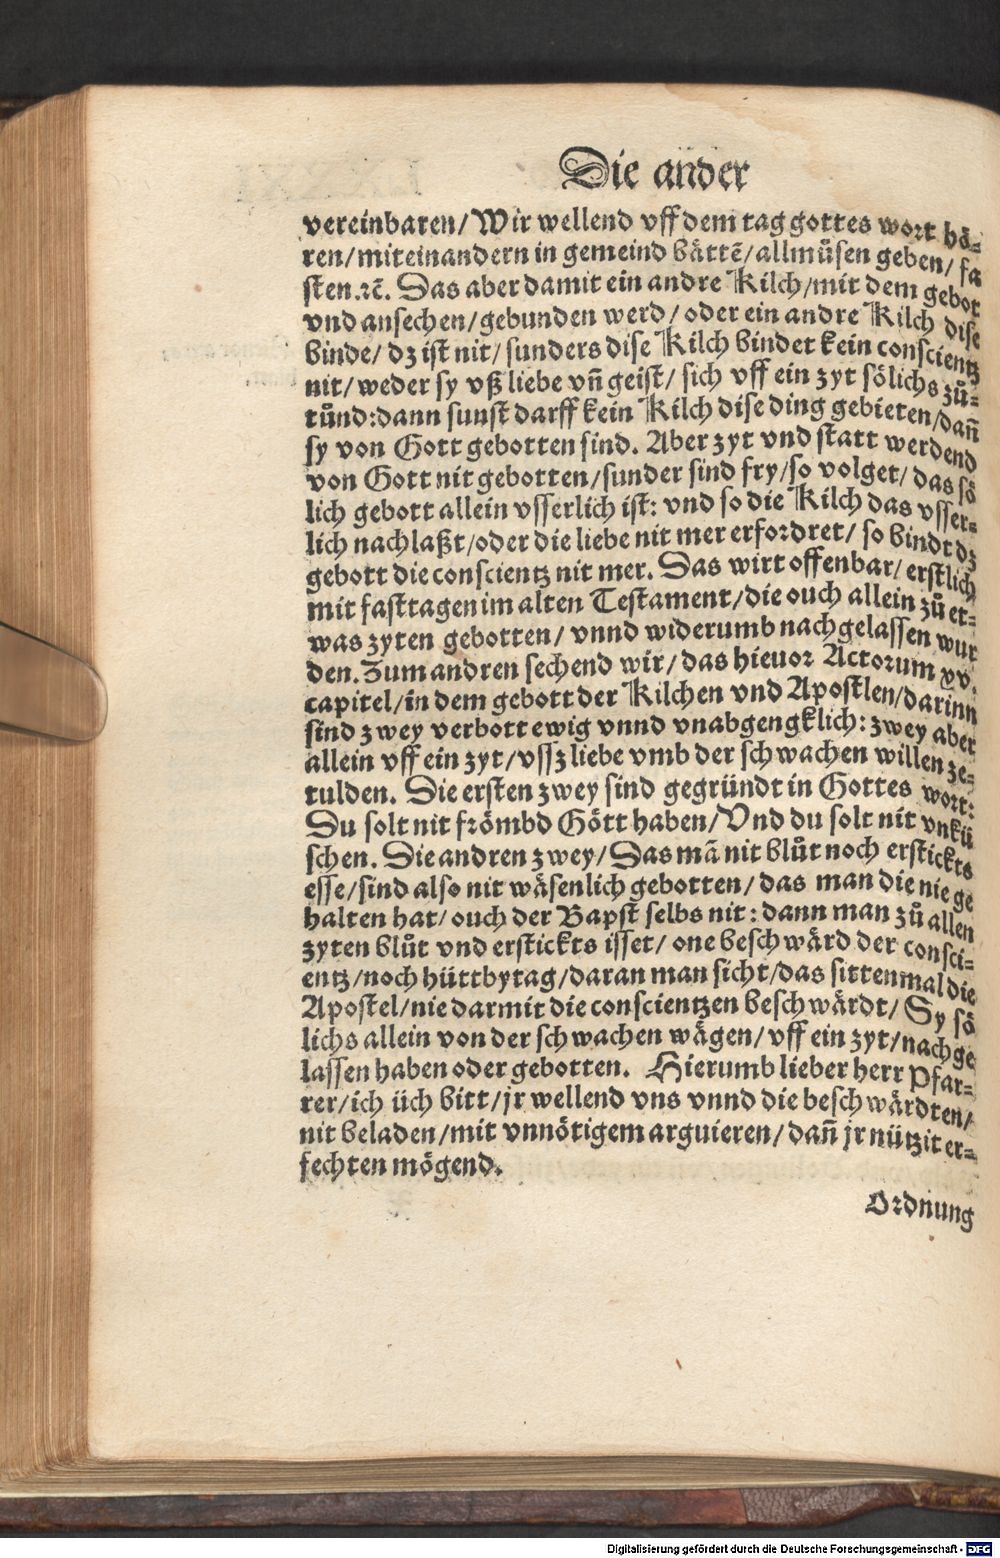 Die ander
vereinbaren/Wir wellend vff dem tag gottes wort hö-
ren/miteinandern in gemeind bättẽ/allmůsen geben/fa
sten.⁊c̃. Das aber damit ein andre Kilch/mit dem gebot
vnd ansechen/gebunden werd/oder ein andre Kilch dise
binde/dz ist nit/sunders dise Kilch bindet kein conscientz
nit/weder sy vß liebe vñ geist/sich vff ein zyt sölichs zů-
tůnd:dann sunst darff kein Kilch dise ding gebieten/dañ
sy von Gott gebotten sind. Aber zyt vnd statt werdend
von Gott nit gebotten/sunder sind fry/so volget/das sö
lich gebott allein vsserlich ist: vnd so die Kilch das vsser-
lich nachlaßt/oder die liebe nit mer erfordret/so bindt dz
gebott die conscientz nit mer. Das wirt offenbar/erstlich
mit fasttagen im alten Testament/die ouch allein zů et-
was zyten gebotten/vnnd widerumb nachgelassen wur
den. Zum andren sechend wir/das hieuor Actorum xv.
capitel/in dem gebott der Kilchen vnd Apostlen/darinn
sind zwey verbott ewig vnnd vnabgengklich: zwey aber
allein vff ein zyt/vssz liebe vmb der schwachen willen ze-
tulden. Die ersten zwey sind gegründt in Gottes wort:
Du solt nit frömbd Gött haben/Vnd du solt nit vnkü
schen. Die andren zwey/Das mã nit blůt noch erstickts
esse/sind also nit wäsenlich gebotten/das man die nie ge
halten hat/ouch der Bapst selbs nit: dann man zů allen
zyten blůt vnd erstickts isset/one beschwärd der consci-
entz/noch hüttbytag/daran man sicht/das sittenmal die
Apostel/nie darmit die conscientzen beschwärdt/Sy sö
lichs allein von der schwachen wägen/vff ein zyt/nachge
lassen haben oder gebotten. Hierumb lieber herr Pfar-
rer/ich üch bitt/jr wellend vns vnnd die beschwärdten/
nit beladen/mit vnnötigem arguieren/dañ jr nützit er-
fechten mögend.
Ordnung
Digitalisierung gefördert durch die Deutsche Forschungsgemeinschaft - DFG